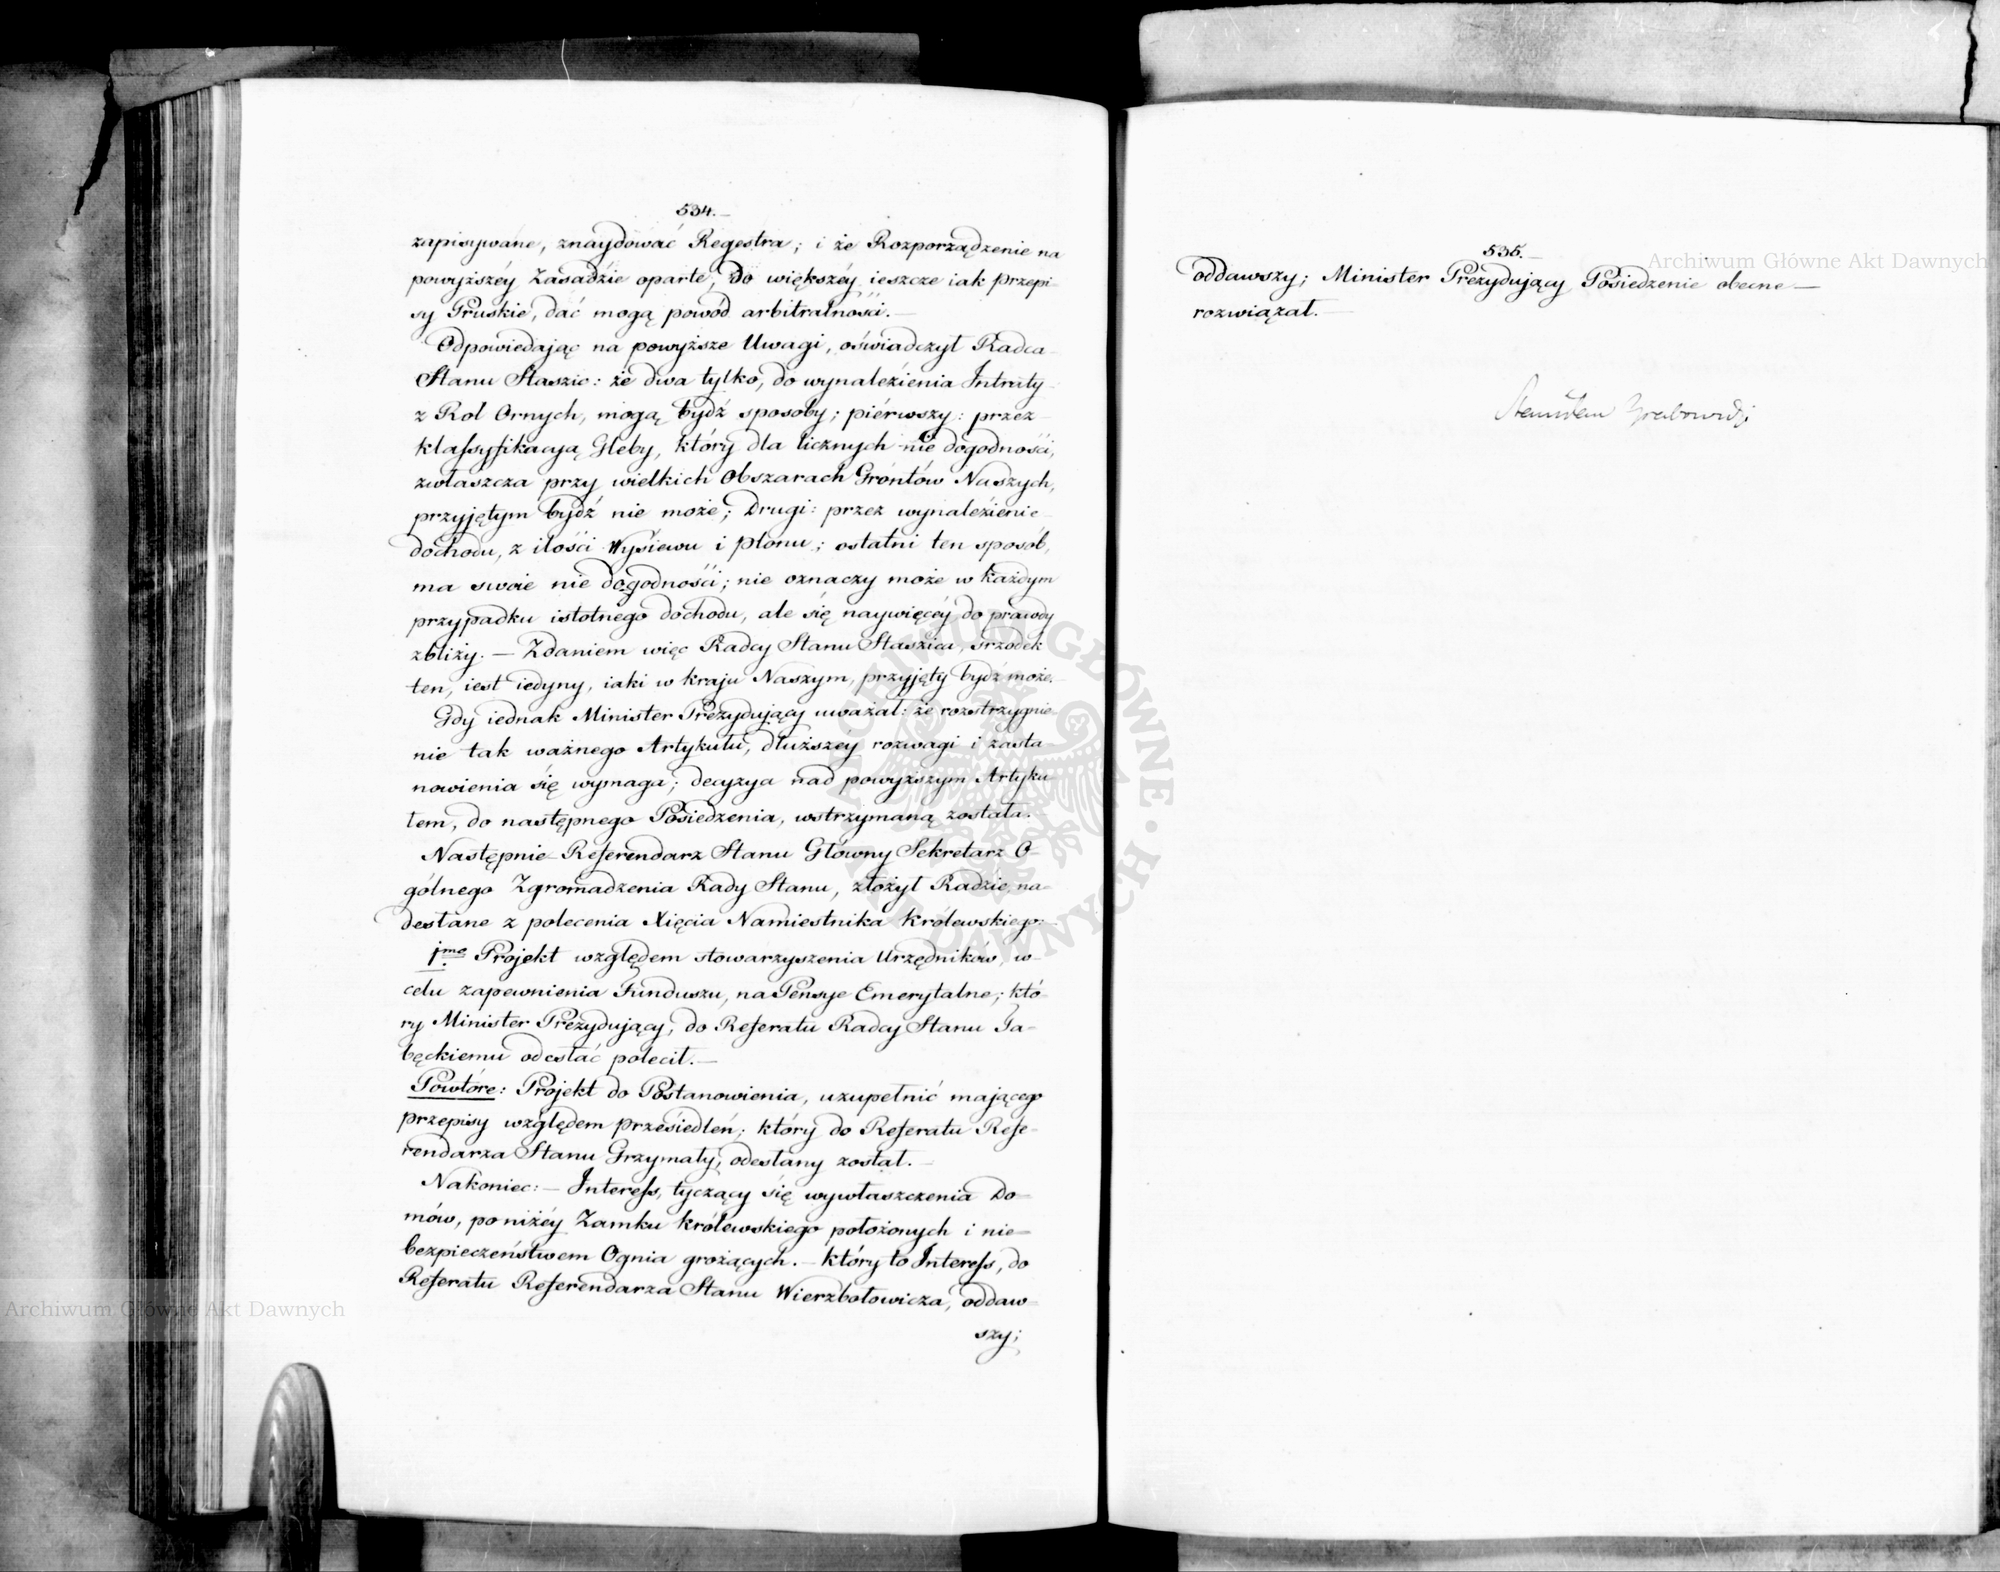 534.
zapisywane, znaydować Regestra; i że Rozporządzenie na
powyższéy Zasadzie oparte, do większéy ieszcze iak przepi-
sy Pruskie, dać mogą powód arbitralności. —
Odpowiedając na powyższe Uwagi, oświadczył Radca
Stanu Staszic: że dwa tylko, do wynalezienia Intraty
z Rol Ornych, mogą bydź sposoby; piérwszy: przez
klassyfikacyą Gleby, który dla licznych nie dogodności,
zwłaszcza przy wielkich Obszarach Gróntów Naszych,
przyjętym bydź nie może; Drugi: przez wynalezienie
dochodu, z ilości Wysiewu i plonu; ostatni ten sposób,
ma swoie nie dogodności; nie oznaczy może w każdym
przypadku istotnego dochodu, ale się naywięcéy do prawdy
zbliży. — Zdaniem więc Radcy Stanu Staszica, srzodek
ten, iest iedyny, iaki w kraju Naszym, przyjęty bydź może.
Gdy iednak Minister Prezydujący uważał: że rozstrzygnie-
nie tak ważnego Artykułu, dłuższéy rozwagi i zasta
nowienia się wymaga; decyzya nad powyższym Artyku
łem, do następnego Posiedzenia, wstrzymaną została.
Następnie Referendarz Stanu Główny Sekretarz O-
gólnego Zgromadzenia Rady Stanu, złożył Radzie, na-
desłane z polecenia Xięcia Namiestnika Królewskiego:
1mo Projekt względem stowarzyszenia Urzędników, w
celu zapewnienia Funduszu, na Pensye Emerytalne; któ-
ry Minister Prezydujący, do Referatu Radcy Stanu Ja-
bęckiemu odesłać polecił. —
Powtóre: Projekt do Postanowienia, uzupełnić mającego
przepisy względem przesiedleń; który do Referatu Refe-
rendarza Stanu Grzymały, odesłany został. —
Nakoniec: — Interess, tyczący się wywłaszczenia Do-
mów, poniżéy Zamku Królewskiego położonych i nie-
bezpieczeństwem Ognia grożących. — który to Interess, do
Referatu Referendarza Stanu Wierzbołowicza, oddaw-
szy;
535.
oddawszy; Minister Prezydujący Posiedzenie obecne —
rozwiązał. —
Stanisław Grabowski
Archiwum Główne Akt Dawnych
Archiwum Główne Akt Dawnych
ARCHIWUM GŁÓWNE AKT DAWNYCH